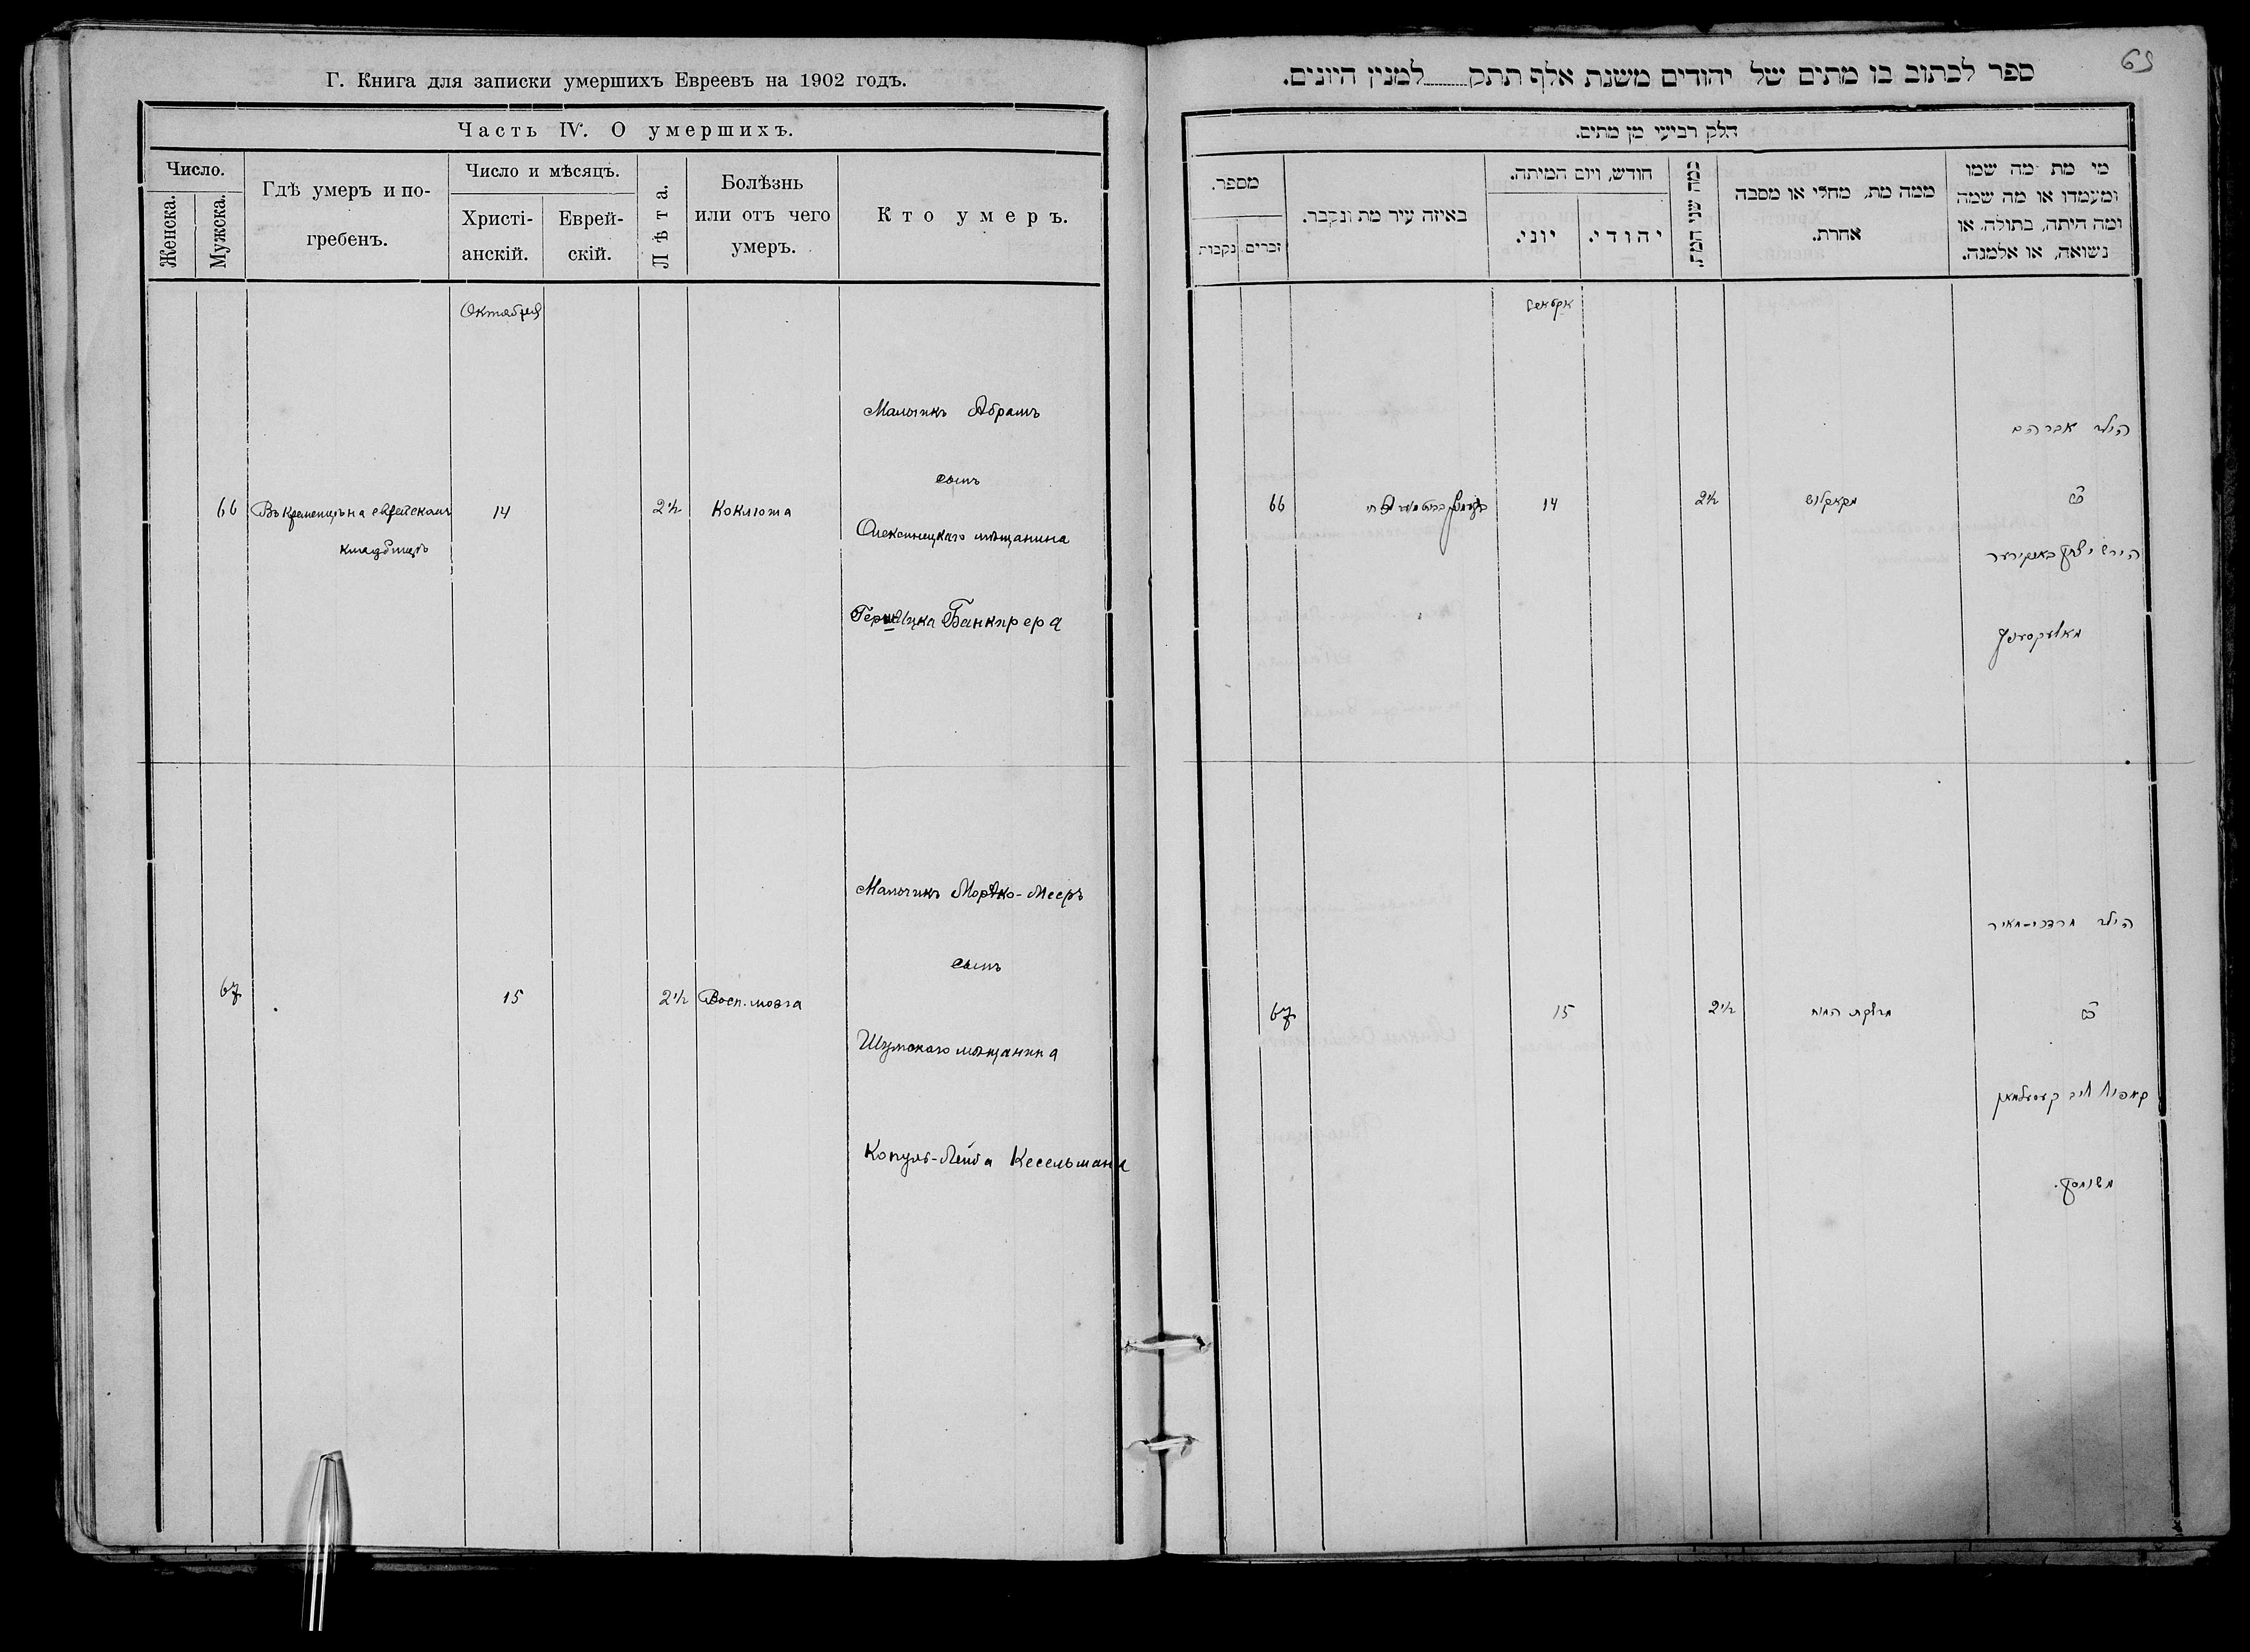 Г. Книга для записки умершихъ Евреевъ на 1902 годъ.
Часть IV. О умершихъ.
Число.
Женска.
Мужска.
Гдѣ умеръ и по-
гребенъ.
Число и мѣсяцъ.
Христі-
анскій.
Еврей-
скій.
Лѣта.
Болѣзнь
или отъ чего
умеръ.
Кто умеръ.
Октября
Мальчикъ Абрамъ
сынъ
66 Въ Кременцѣ на еврейскомъ 14 2½ Коклюша
кладбищѣ
Олексинецкаго мѣщанина
Банкирера
Мальчикъ Мордко-Мееръ
сынъ
67 15 2½ Восп. мозга
Шумскаго мѣщанина
Копуль-Лейба Кесельмана
69
ספר לכתוב בו מתים של יהודים משנת אלף תתק למנין היונים.
חלק רביעי מן מתים.
מספר.
נקבות
זכרים
באיזה עיר מת ונקבר.
חודש, ויום המיתה.
יוני.
יהודי.
כמה שני המת.
ממה מת, מחלי או מסבה
אחרת.
מי מת מה שמו
ומעמדו או מה שמה
ומה היתה, בתולה, או
נשואה, או אלמנה.
הילד אברהם
66 14 2½
הירש באנקירער
הילד מרדכי-מאיר
67 15 2½ דלקת המוח
קאפיל ליב קעסעלמאן
משומסק.